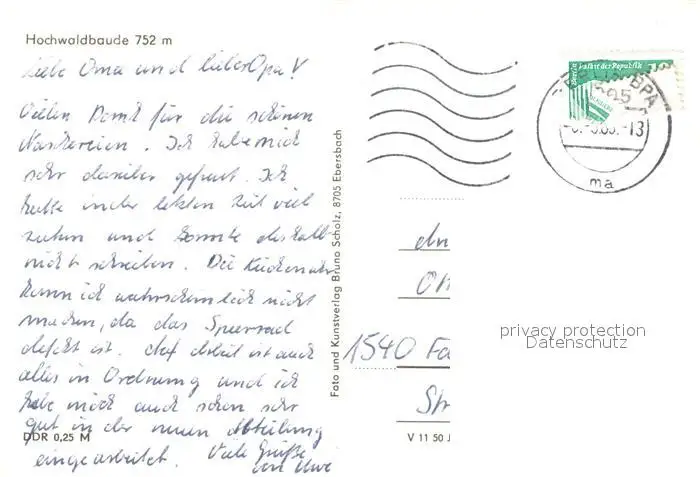 Hochwaldbaude 752 m
Liebe Oma und lieber Opa!
Vielen Dank für die schönen
Naschereien. Ich habe mich
sehr darüber gefreut. Ich
hatte in der letzten Zeit viel
zu tun und konnte deshalb
nicht schreiben. Die Küchenuhr
kann ich wahrscheinlich nicht
machen, da das Sperrad
defekt ist. Auf Arbeit ist auch
alles in Ordnung und ich
habe mich auch schon sehr
gut in der neuen Abteilung
eingearbeitet. Viele Grüße
von Uwe
DDR 0,25 M
Foto und Kunstverlag Bruno Scholz, 8705 Ebersbach
Palast der Republik
BPA
-13
ma
An
1540 Fa
St
V 11 50 J
privacy protection
Datenschutz